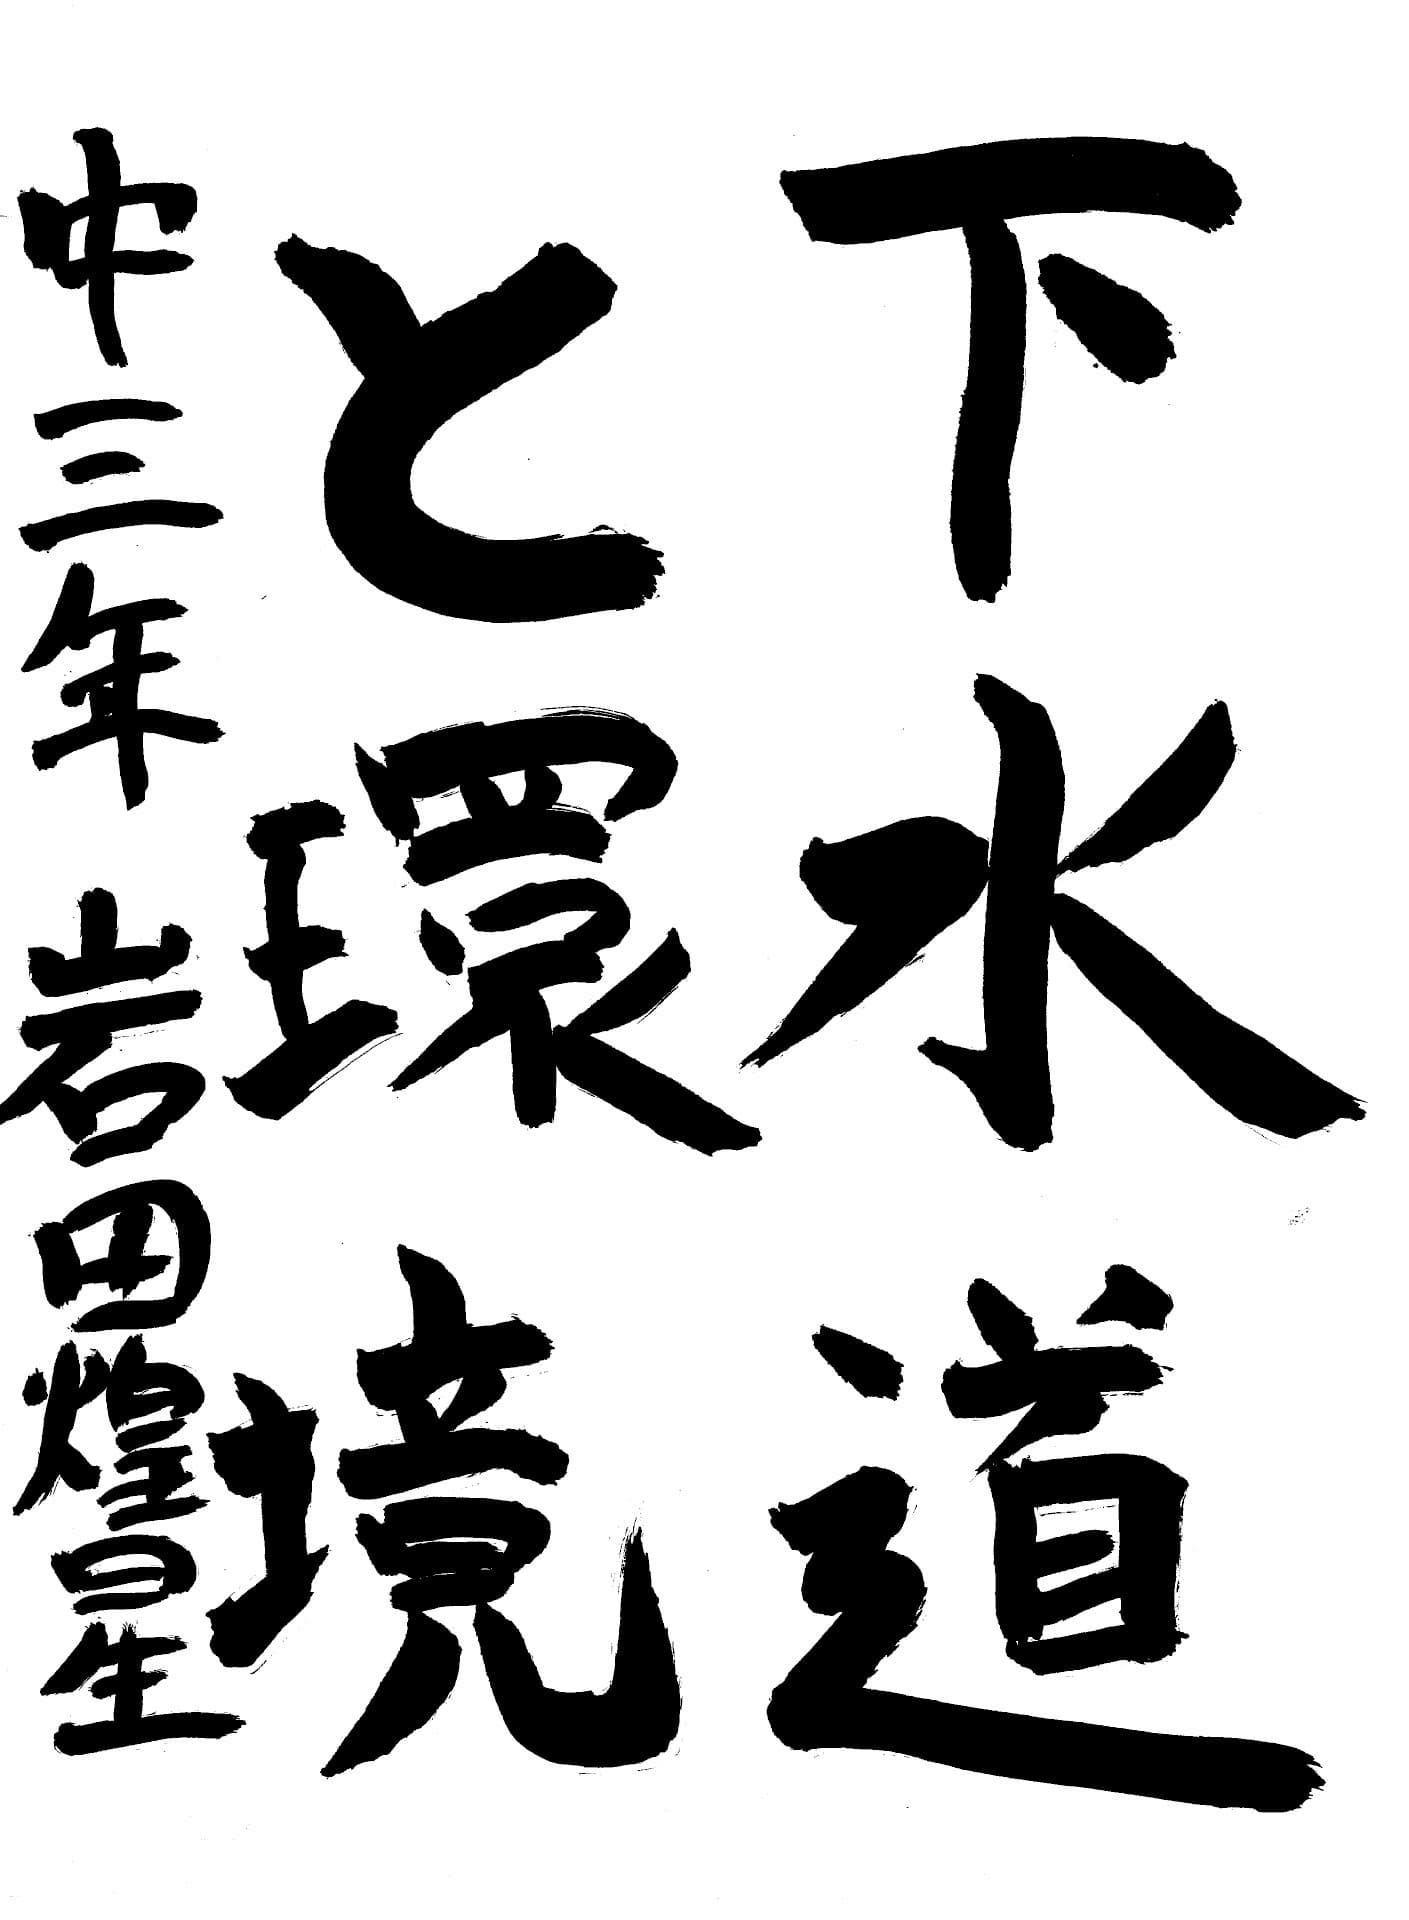 下水道
と環境
中三年 岩田煌星